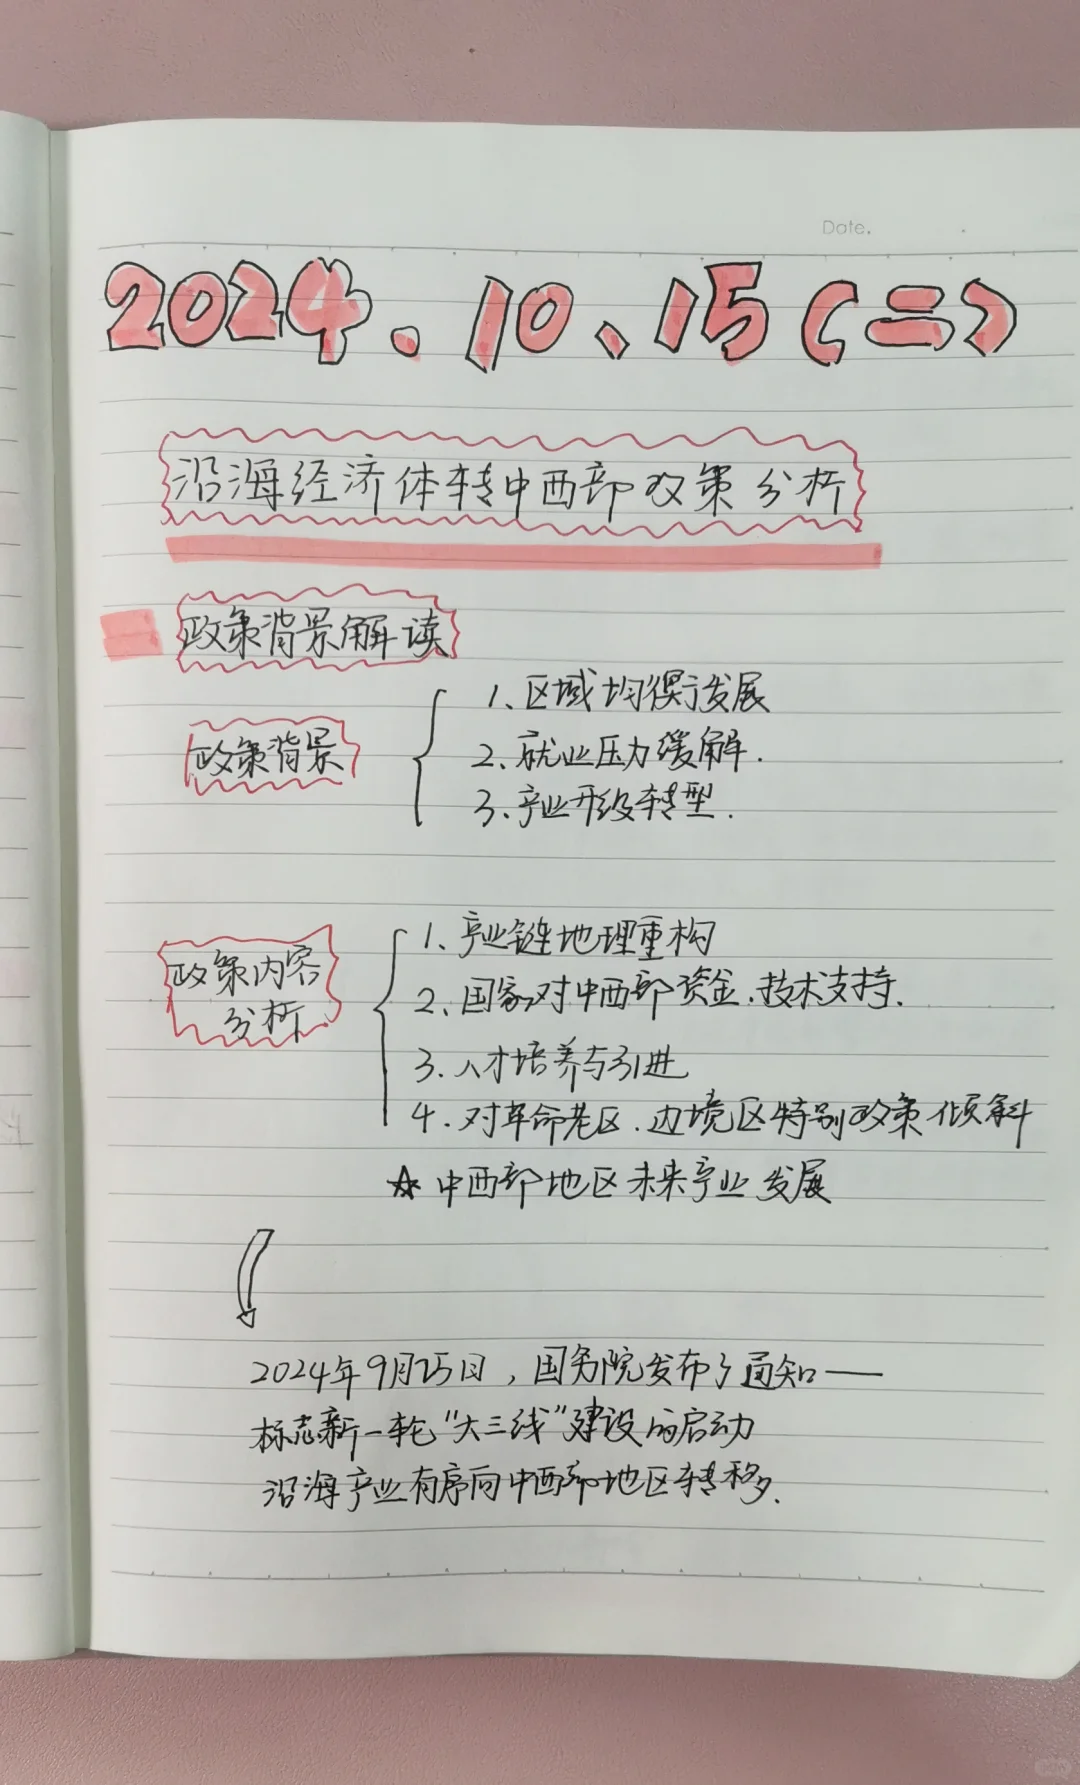 Date.
2024.10、15(二)
沿海经济体转中西部政策分析
政策背景解读
政策背景
1、区域均衡发展
2、就业压力缓解.
3、产业升级转型.
政策内容
分析
1、产业链地理重构
2、国家对中西部资金、技术支持.
3.人才培养与引进
4.对革命老区、边境区特别政策倾斜
☆中西部地区未来产业发展
2024年9月25日，国务院发布了通知——
标志新一轮“大三线”建设的启动
沿海产业有序向中西部地区转移.